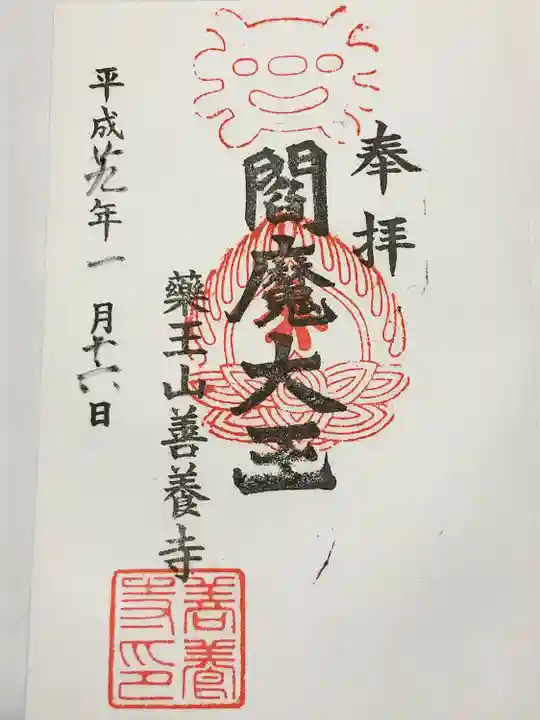 奉拝
閻魔大王
薬王山善養寺
平成廿九年一月十六日
善養
寺印